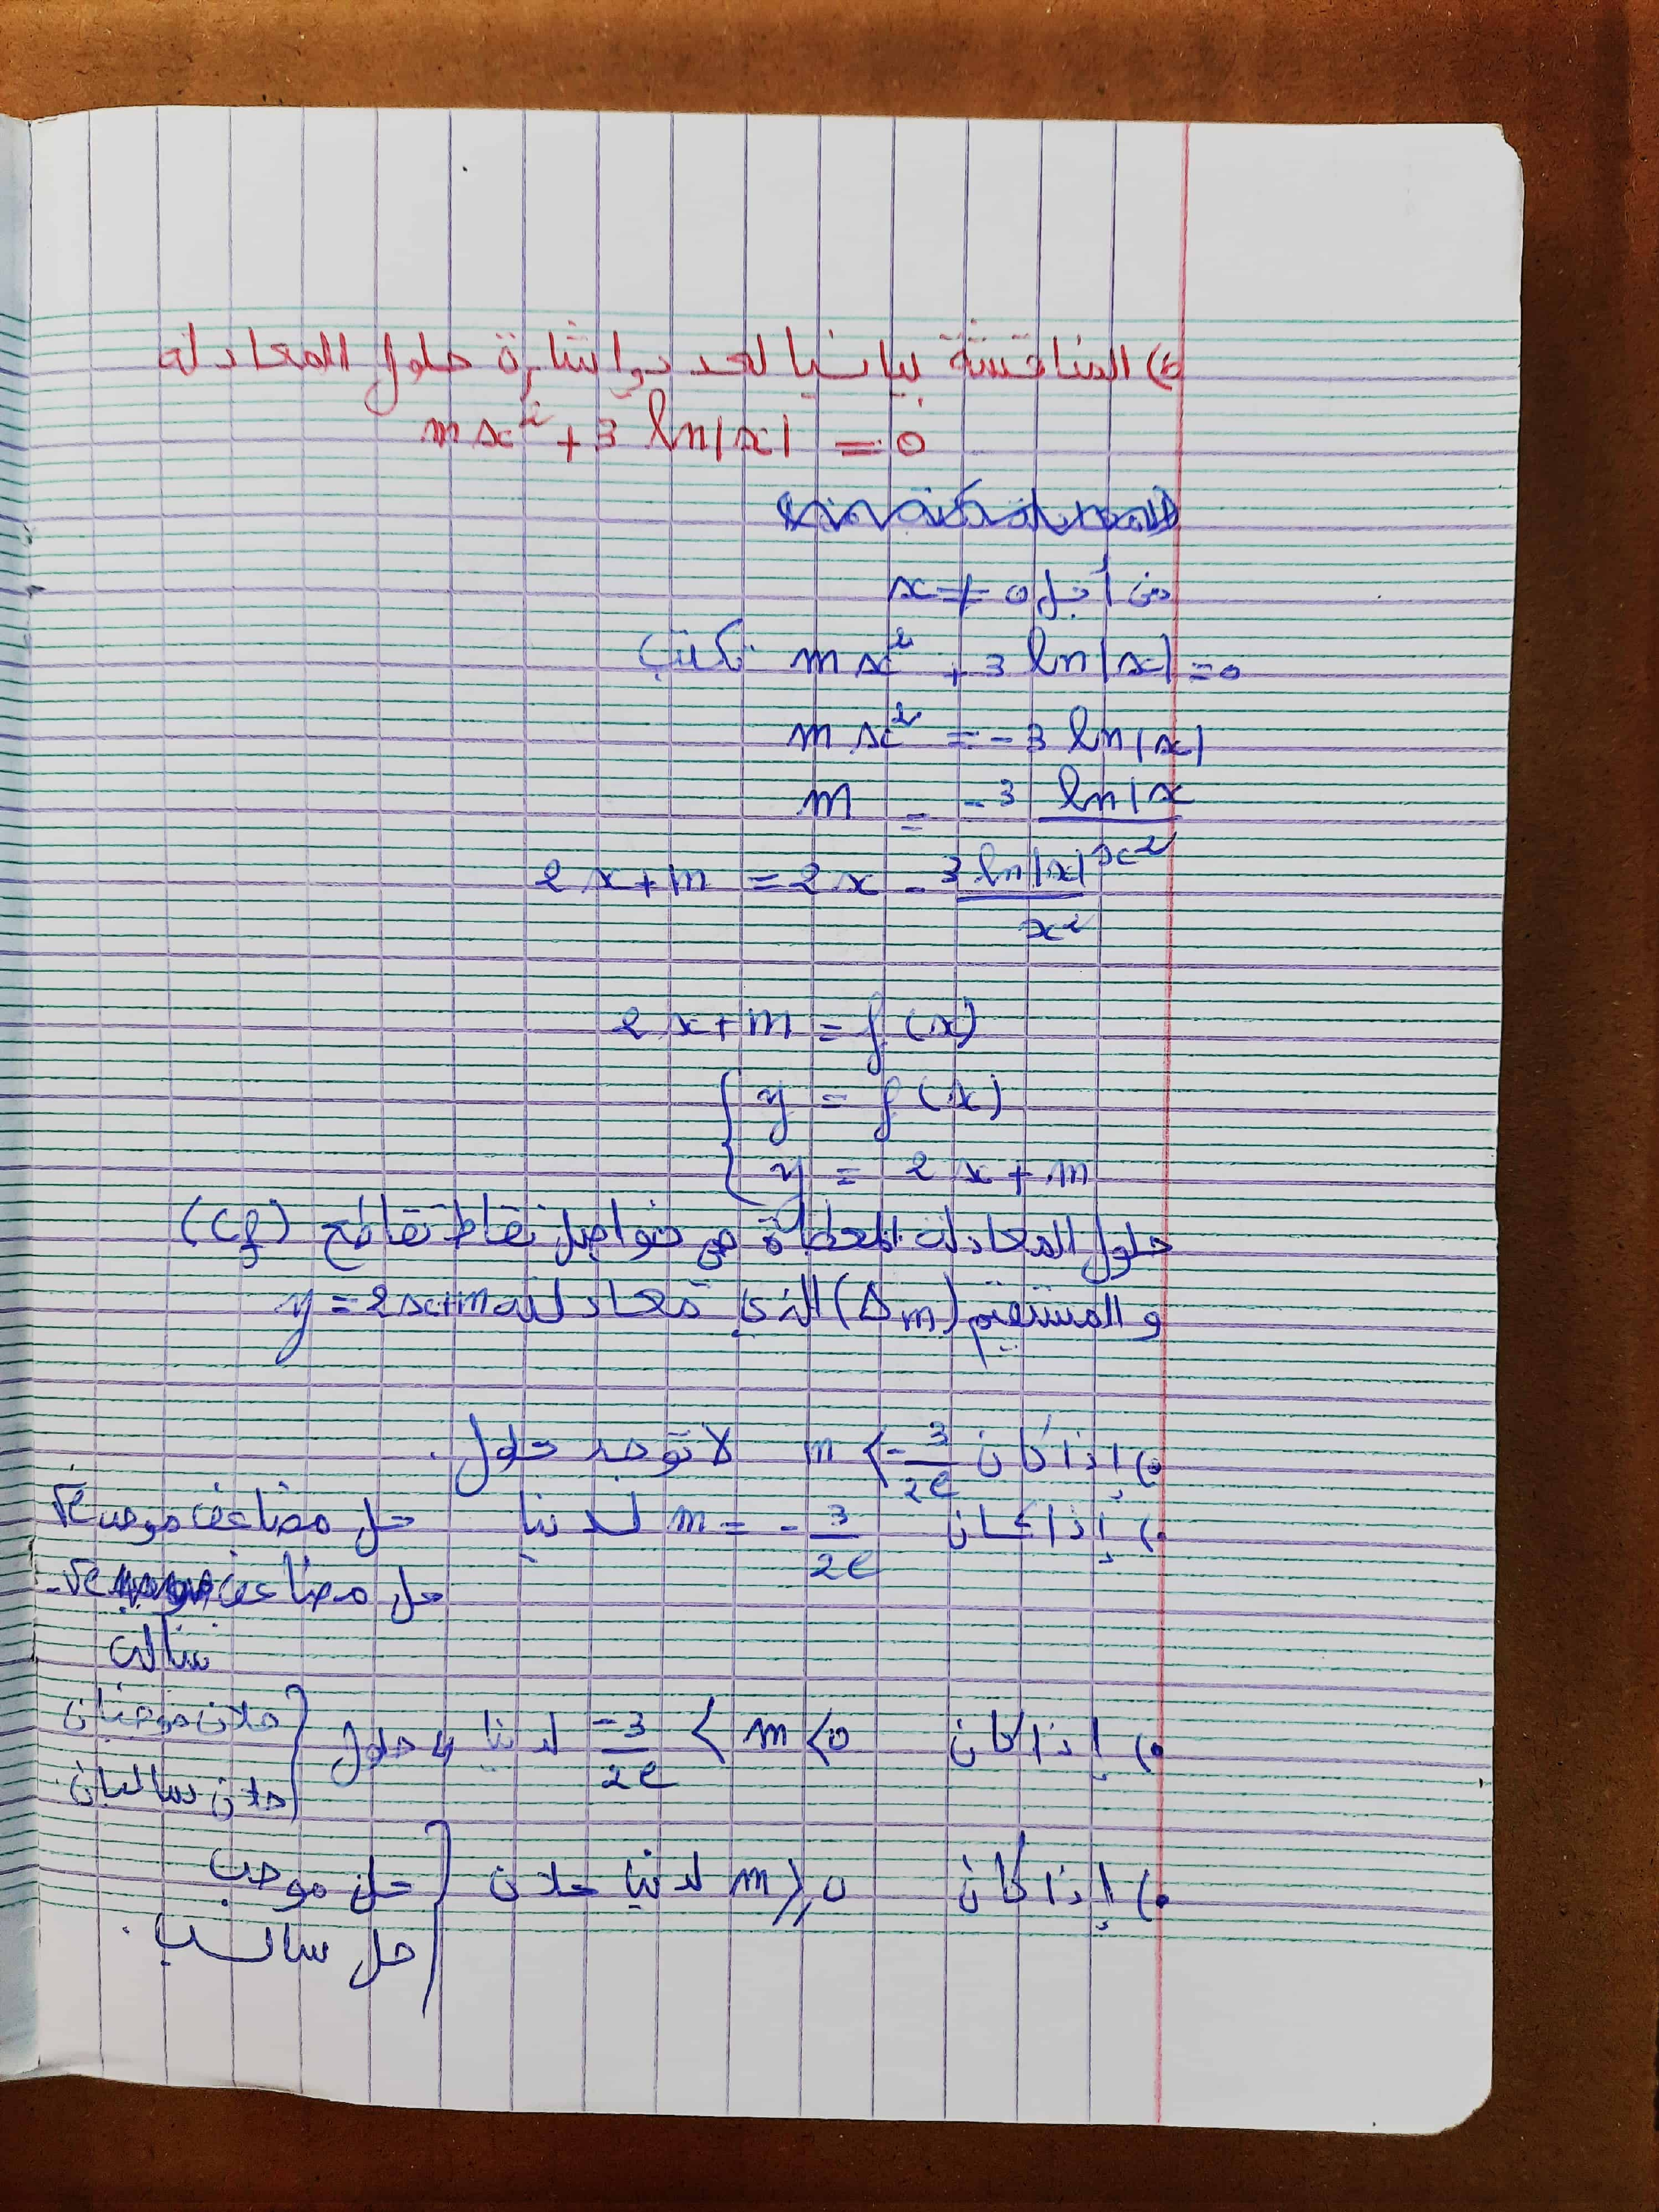 6) المناقشة بيانيا لعدد وإشارة حلول المعادلة
mx² + 3 ln|x| = 0
من أجل x ≠ 0
نكتب mx² + 3 ln|x| = 0
mx² = -3 ln|x|
m = -3 ln|x / x²
2x+m = 2x - 3 ln|x| / x²
2x+m = f(x)
{ y = f(x)
y = 2x+m
حلول المعادلة المعطاة هي فواصل نقاط تقاطع (Cf)
و المستقيم (Δm) الذي معادلته y = 2x+m
•) إذا كان m < -3/2e لا توجد حلول.
•) إذا كان m = -3/2e لدينا حل مضاعف موجب √e
حل مضاعف -√e
سالب
•) إذا كان -3/2e < m < 0 لدينا 4 حلول { حلان موجبان
حلان سالبان.
•) إذا كان m ⩾ 0 لدينا حلان { حل موجب
حل سالب.